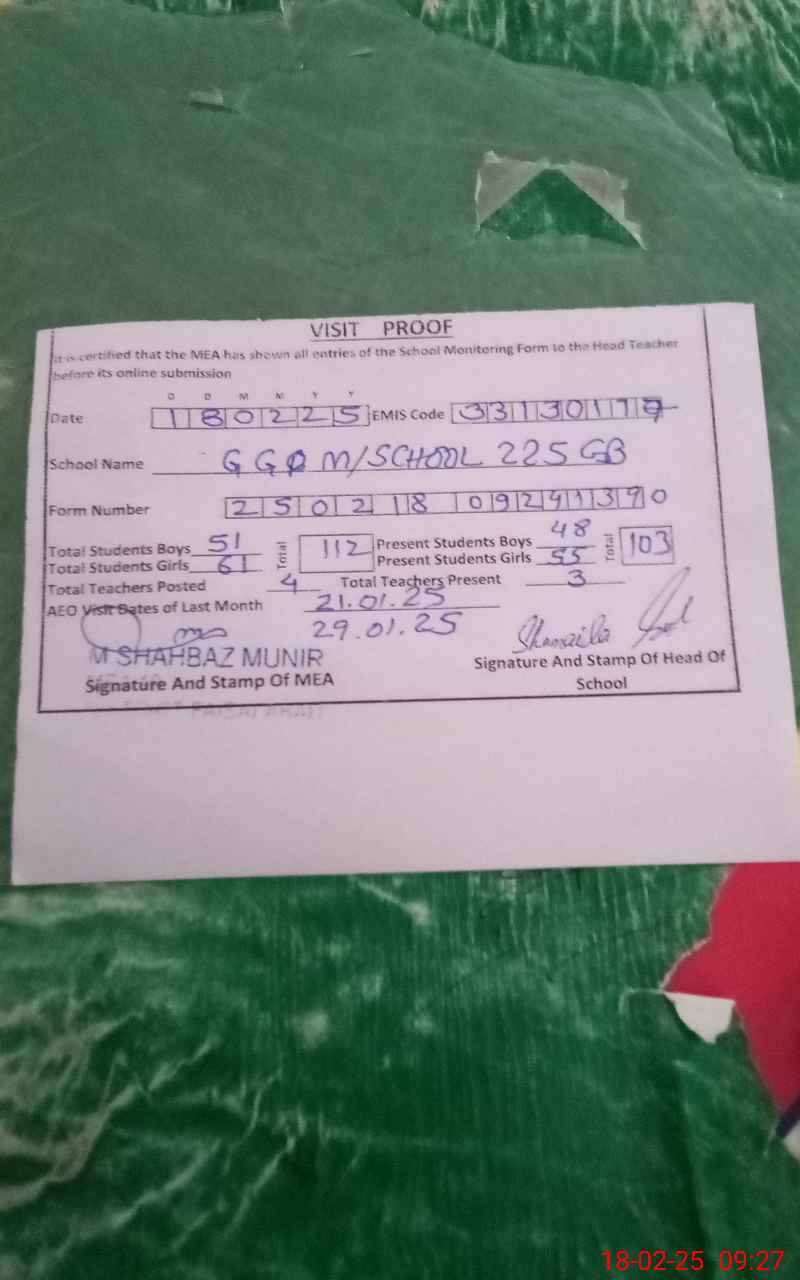 VISIT PROOF
It is certified that the MEA has shown all entries of the School Monitoring Form to the Head Teacher
before its online submission
D D M M Y Y
Date 180225 EMIS Code 33130117
School Name GG M/SCHOOL 225 GB
Form Number 250218 092411390
Total Students Boys 51 Total 112 Present Students Boys 48 Total 103
Total Students Girls 61 Present Students Girls 55
Total Teachers Posted 4 Total Teachers Present 3
AEO Visit Dates of Last Month 21.01.25
29.01.25
M SHAHBAZ MUNIR Shamaila
Signature And Stamp Of MEA Signature And Stamp Of Head Of
School
18-02-25 09:27